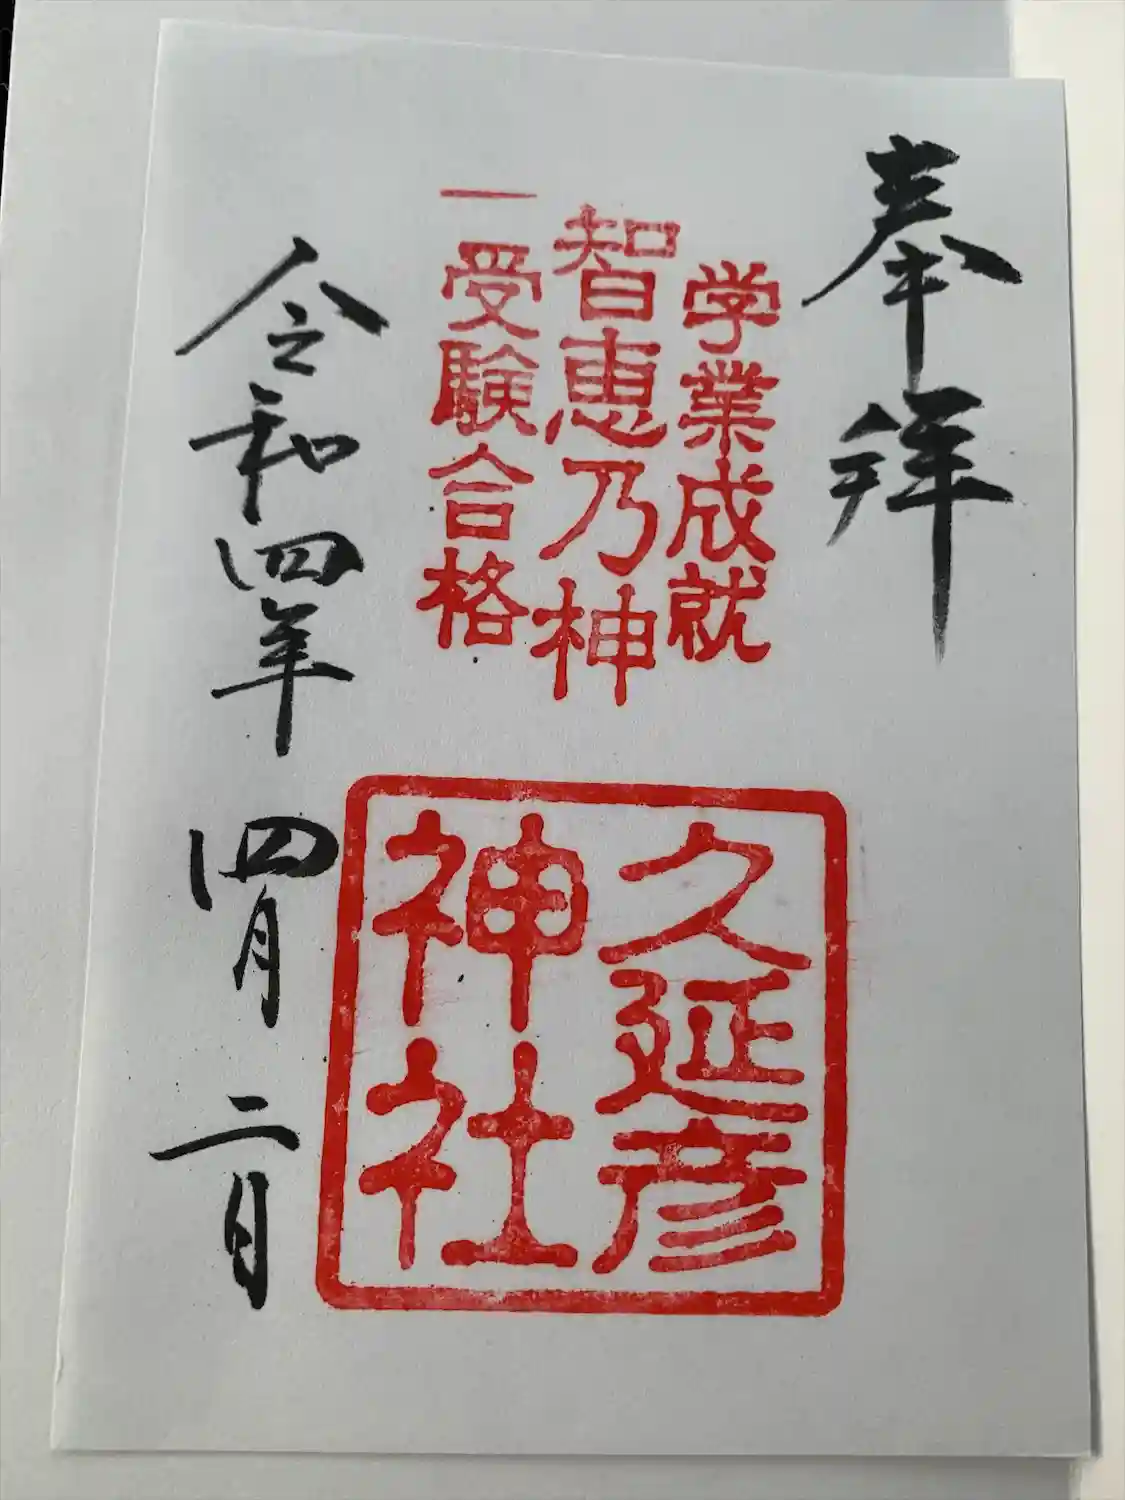 奉拝
学業成就
智恵乃神
一受験合格
久延彦
神社
令和四年四月二日